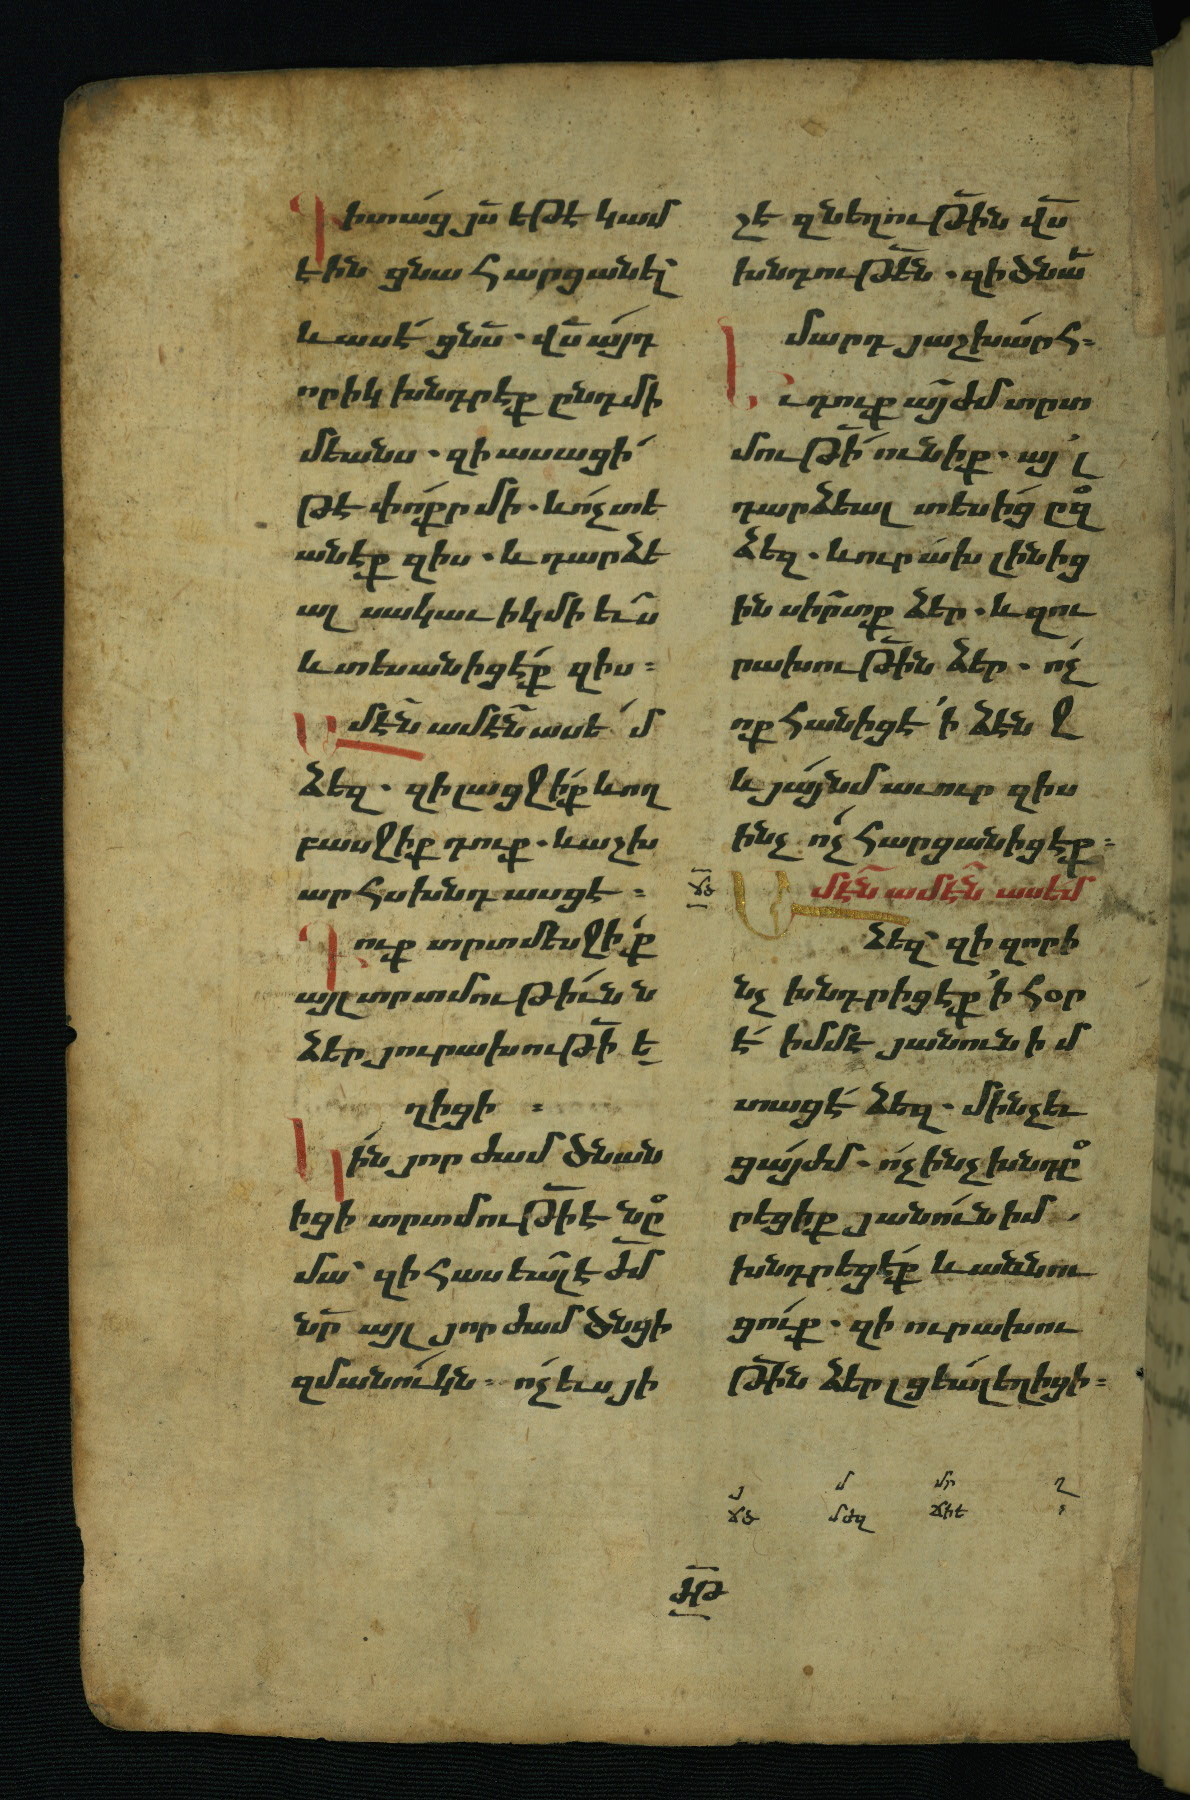 Գիտաց յս եթէ կամ
էին ցնա հարցանել՝
և ասէ ցնս. վս այդ
որիկ խնդրէք ընդ մի
մեանս. զի ասացի
թէ փոքր մի. և ոչ տե
սանէք զիս. և դարձե
ալ սակաւիկ մի եւս
և տեսանիցէք զիս:
Ամէն ամէն ասեմ
ձեզ. զի լացջիք և ող
բասջիք դուք. և աշխ
արհս խնդասցէ:
Դուք տրտմեսջիք
այլ տրտմութիւնն
ձեր յուրախութի ե
ղիցի:
Կին յորժամ ծնան
իցի տրտմութի է ն
մա՝ զի հասեալ է ժմ
նր այլ յորժամ ծնցի
զմանուկն: ոչ ևս յի
շէ զնեղութին վս
խնդութեն. զի ծնաւ
մարդ յաշխարհ:
Եւ դուք այժմ տրտ
մութի ունիք. այլ
դարձեալ տեսից ըզ
ձեզ. և ուրախ լինից
ին սիրտք ձեր. և զու
րախութին ձեր. ոչ
ոք հանիցէ ի ձէնջ
և յայնմ աւուր զիս
ինչ ոչ հարցանիցէք:
ճծ
Ամէն ամէն ասեմ
ձեզ՝ զի զորի
նչ խնդրիցէք ի հօր
է իմմէ յանուն իմ
տացէ ձեզ. մինչեւ
ցայժմ. ոչ ինչ խնդ
րեցիք յանուն իմ.
խնդրեցէք և առնու
ցուք. զի ուրախու
թին ձեր լցեալ եղիցի:
յ մ մր ղ
ճծ մժզ ճիե
ժթ